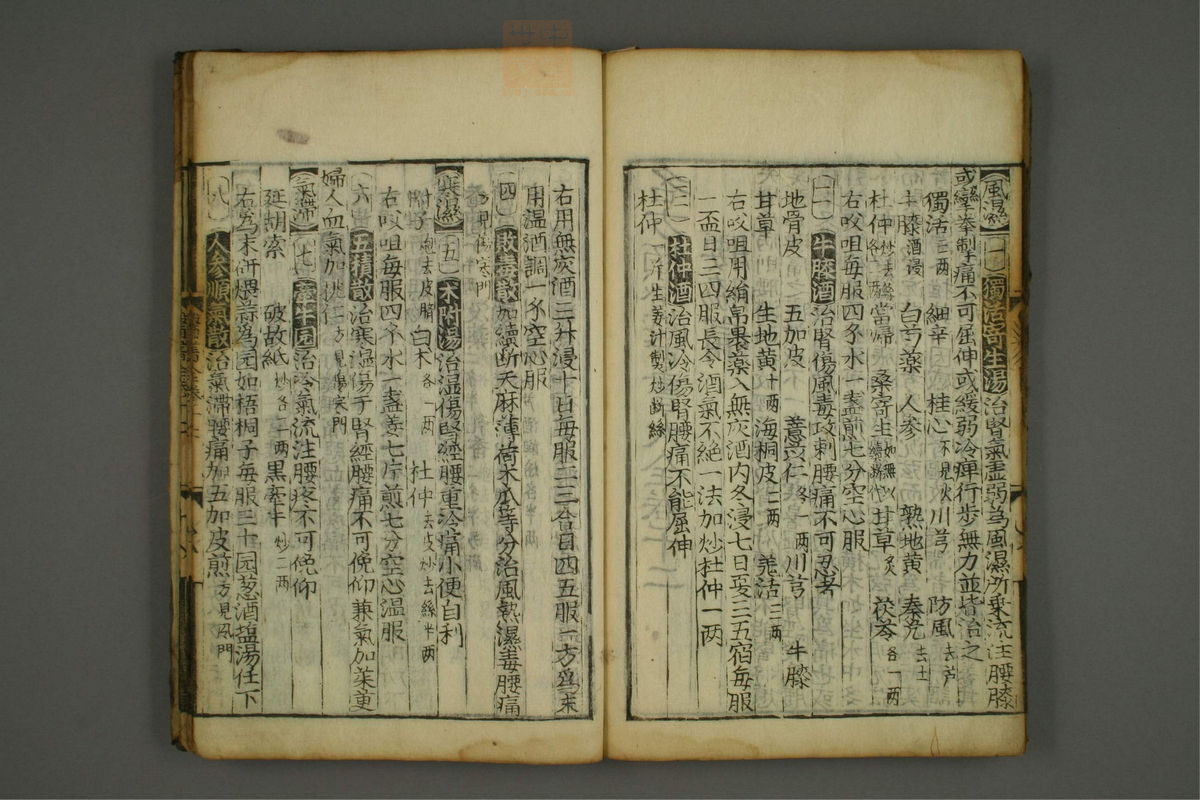 風濕 一 獨活寄生湯 治腎氣虛弱為風濕所乘流注腰膝
或攣拳掣痛不可屈伸或緩弱冷痺行步無力並皆治之
獨活三两 細辛 桂心不見火 川芎 防風去芦
牛膝酒浸 白芍藥 人參 熟地黃 秦艽去土
杜仲炒去絲 當歸 桑寄生如無以續斷代 甘草炙 茯苓各一两
右㕮咀每服四錢水一盞煎七分空心服
二 牛膝酒 治腎傷風毒攻刺腰痛不可忍者
地骨皮 五加皮 薏苡仁各一两 川芎 牛膝
甘草 生地黃十两 海桐皮二两 羌活一两
右㕮咀用絹帛裹藥入無灰酒内冬浸七日夏三五宿每服
一盃日三四服長令酒氣不絕一法加炒杜仲一两
三 杜仲酒 治風冷傷腎腰痛不能屈伸
杜仲一斤生姜汁製炒断絲
右用無灰酒三升浸十日每服二三合日四五服一方爲末
用温酒調一錢空心服
四 敗毒散 加續断天麻薄荷木瓜等分治風熱濕毒腰痛
方見傷寒門
寒濕 五 术附湯 治湿傷腎經腰重冷痛小便自利
附子炮去皮臍 白术各一两 杜仲去皮炒去絲半两
右㕮咀每服四錢水一盞姜七片煎七分空心温服
六 五積散 治寒湿傷于腎經腰痛不可俛仰兼氣加茱萸
婦人血氣加桃仁方見傷寒門
氣滯 七 牽牛圎 治冷氣流注腰疼不可俛仰
延胡索 破故紙炒各一两 黑牽牛炒二两
右爲末研煨蒜爲圎如梧桐子每服三十圎葱酒塩湯任下
八 人參順氣散 治氣滯腰痛加五加皮煎方見風門